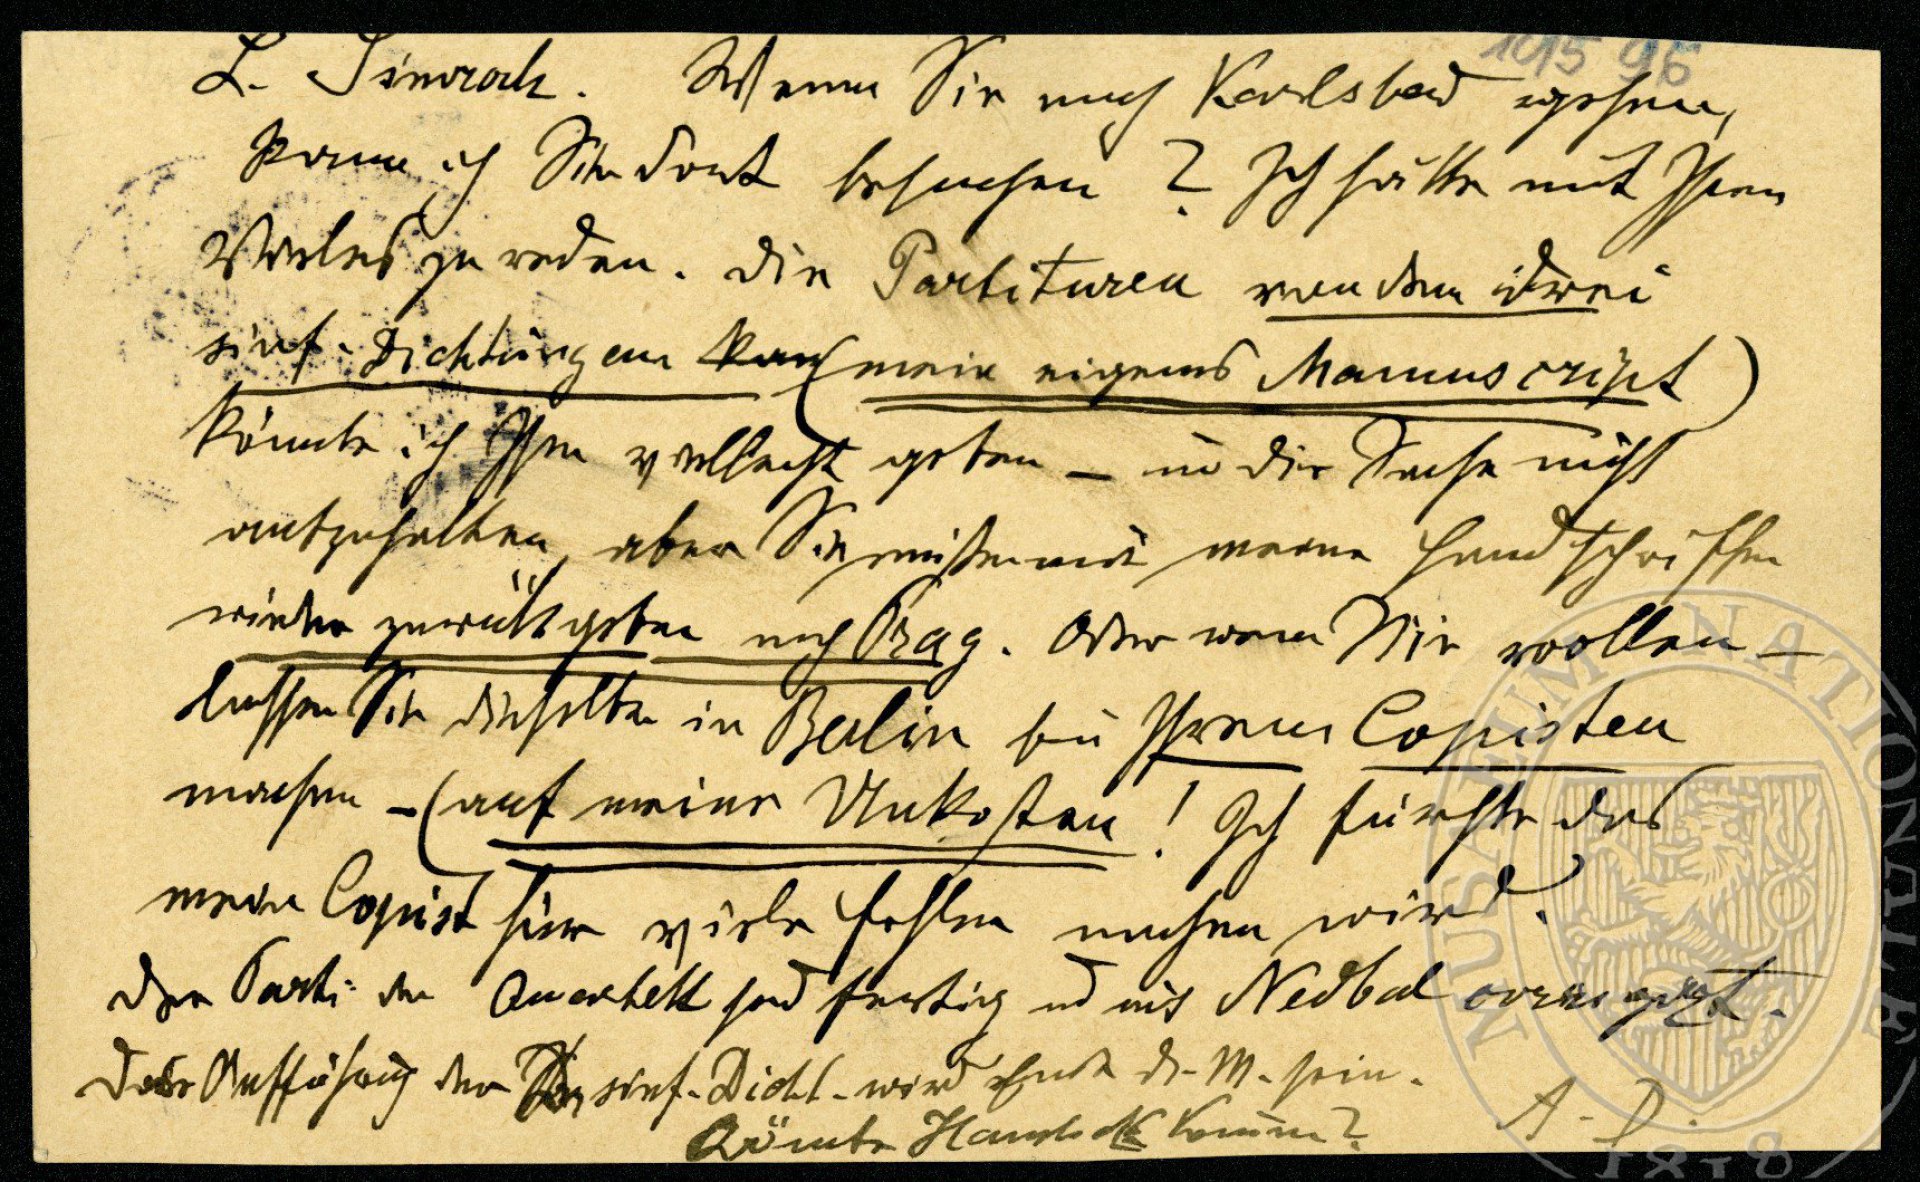 1015 96
L. Simrock. Wenn Sie nach Karlsbad gehen,
kann ich Sie dort besuchen? Ich hätte mit Ihnen
Vieles zu reden. Die Partituren von den drei
sinf. Dichtungen (mein eigenes Manuscript)
könnte ich Ihnen vielleicht geben – um die Sache nicht
aufzuhalten, aber Sie müßen mir meine Handschriften
wieder zurückgeben nach Prag. Oder wenn Sie wollen –
lassen Sie dieselben in Berlin bei Ihrem Copisten
machen – (auf meine Unkosten! Ich fürchte das
mein Copist hier viele Fehler machen wird.
Der Quartett sind fertig und Nedbal corrigirt.
Aufführung der sinf. Dicht. wird Ende d. M. sein.
Könnte kommen?
A. D.
MUSEUM NATIONALE
1818